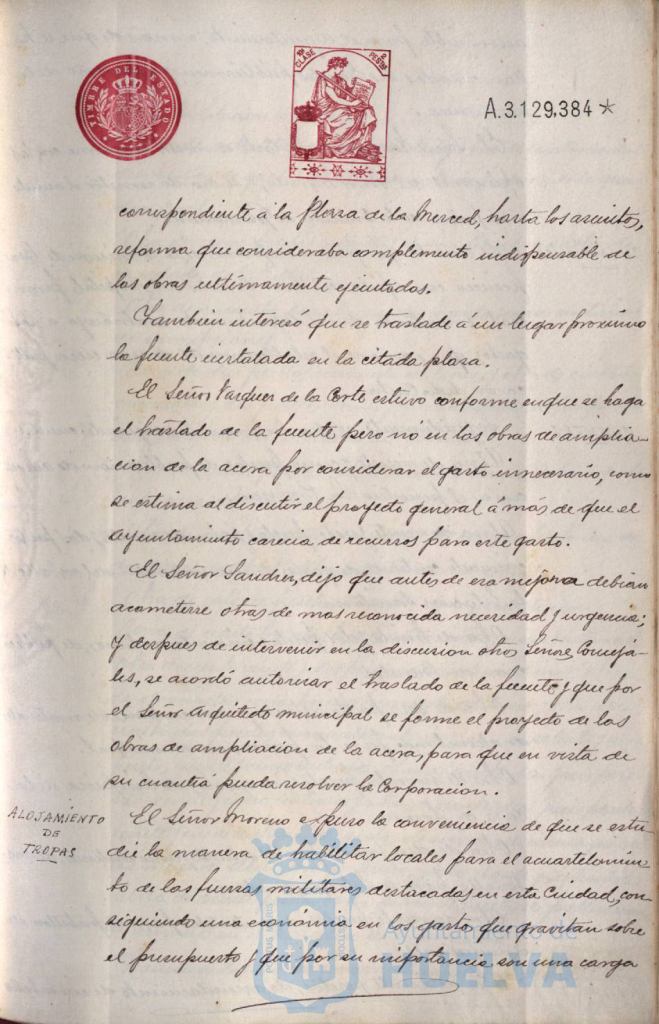 TIMBRE DEL ESTADO
10ª CLASE
2 PESETAS
A.3.129,384*
correspondiente á la Plaza de la Merced, hasta los asientos,
reforma que consideraba complemento indispensable de
las obras ultimamente ejecutadas.
Tambien interesó que se traslade á un lugar proximo
la fuente instalada en la citada plaza.
El Señor Vazquez de la Corte estuvo conforme en que se haga
el traslado de la fuente pero nó en las obras de amplia-
cion de la acera por considerar el gasto innecesario, como
se estima al discutir el proyecto general á más de que el
ayuntamiento carecia de recursos para este gasto.
El Señor Sanchez, dijo que antes de esa mejora debian
acometerse otras de mas reconocida necesidad y urgencia;
y despues de intervenir en la discusion otros Señores Conceja-
les, se acordó autorizar el traslado de la fuente y que por
el Señor Arquitecto municipal se forme el proyecto de las
obras de ampliacion de la acera, para que en vista de
su cuantiá pueda resolver la Corporacion.
ALOJAMIENTO
DE
TROPAS
El Señor Moreno expuso la conveniencia de que se estu-
die la manera de habilitar locales para el acuartelamien-
to de las fuerzas militares destacadas en esta Ciudad, con-
siguiendo una económia en los gasto que gravitan sobre
el presupuesto y que por su importancia son una carga
Ayuntamiento de
HUELVA